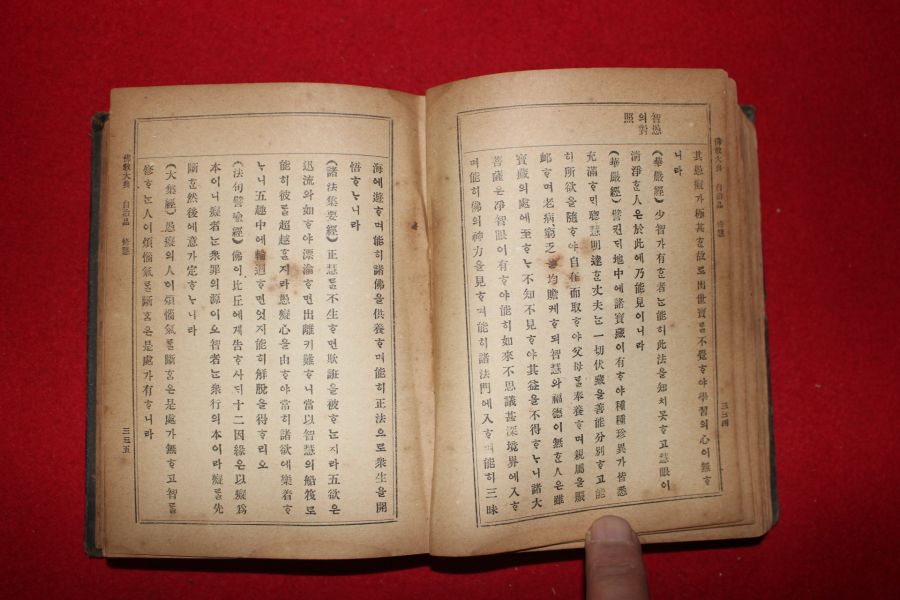 佛敎大典 自治品 修慧
三三四
智愚
의對
照
其愚癡가極甚ᄒᆞᆫ故로出世寶ᄅᆞᆯ不覺ᄒᆞ야學習의心이無ᄒᆞ
니라
(華嚴經) 少智가有ᄒᆞᆫ者ᄂᆞᆫ能히此法을知치못ᄒᆞ고慧眼이
淸淨ᄒᆞᆫ人은於此에乃能見이니라
(華嚴經) 譬컨ᄃᆡ地中에諸寶藏이有ᄒᆞ야種種珍異가皆悉
充滿ᄒᆞ며聰慧明達ᄒᆞᆫ丈夫ᄂᆞᆫ一切伏藏을善能分別ᄒᆞ고能
히所欲을隨ᄒᆞ야自在而取ᄒᆞ야父母ᄅᆞᆯ奉養ᄒᆞ며親屬을賑
卹ᄒᆞ며老病窮乏을均贍케ᄒᆞ되智慧와福德이無ᄒᆞᆫ人은雖
寶藏의處에至ᄒᆞ나不知不見ᄒᆞ야其益을不得ᄒᆞᄂᆞ니諸大
菩薩은淨智眼이有ᄒᆞ야能히如來不思議甚深境界에入ᄒᆞ
며能히佛의神力을見ᄒᆞ며能히諸法門에入ᄒᆞ며能히三昧
海에遊ᄒᆞ며能히諸佛을供養ᄒᆞ며能히正法으로衆生을開
悟ᄒᆞᄂᆞ니라
(諸法集要經) 正慧ᄅᆞᆯ不生ᄒᆞ면欺誑을被ᄒᆞᄂᆞᆫ지라五欲은
迅流와如ᄒᆞ야漂淪ᄒᆞ면出離키難ᄒᆞ니當以智慧의船筏로
能히彼ᄅᆞᆯ超越ᄒᆞᆯ지라愚癡心을由ᄒᆞ야常히諸欲에樂着ᄒᆞ
ᄂᆞ니五趣中에輪迴ᄒᆞ면엇지能히解脫을得ᄒᆞ리오
(法句譬喩經) 佛이比丘에게告ᄒᆞ사ᄃᆡ十二因緣은以癡爲
本이니癡者ᄂᆞᆫ衆罪의源이오智者ᄂᆞᆫ衆行의本이라癡ᄅᆞᆯ先
斷ᄒᆞᆫ然後에意가定ᄒᆞᄂᆞ니라
(大集經) 愚癡의人이煩惱氣ᄅᆞᆯ斷홈은是處가無ᄒᆞ고智ᄅᆞᆯ
修ᄒᆞᄂᆞᆫ人이煩惱氣ᄅᆞᆯ斷홈은是處가有ᄒᆞ니라
佛敎大典 自治品 修慧
三三五